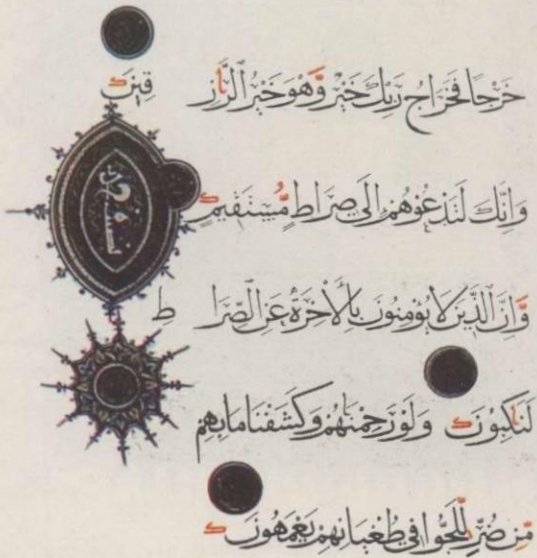 خَرْجًا فَخَرَاجُ رَبِّكَ خَيْرٌ وَّهُوَ خَيْرُ الرَّازِ قِينَ
وَإِنَّكَ لَتَدْعُوهُمْ إِلَى صِرَاطٍ مُّسْتَقِيمٍ
وَإِنَّ الَّذِينَ لَا يُؤْمِنُونَ بِالْأَخِرَةِ عَنِ الصِّرَا طِ
لَنَاكِبُونَ وَلَوْ رَحِمْنَاهُمْ وَكَشَفْنَا مَا بِهِمْ
مِّن ضُرٍّ لَّلَجُّوا فِي طُغْيَانِهِمْ يَعْمَهُونَ